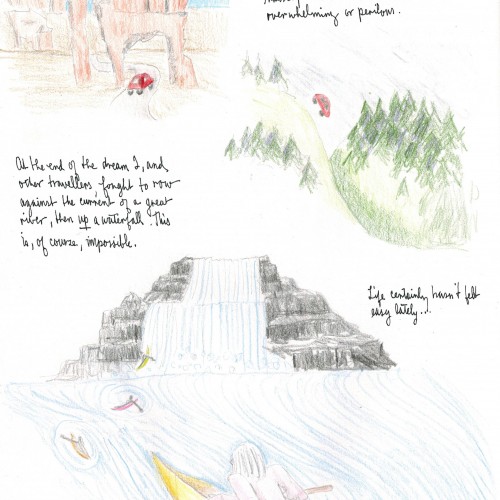 overwhelming or perilous.
At the end of the dream I, and
other travellers, fought to row
against the current of a great
river, then up a waterfall. This
is, of course, impossible.
Life certainly hasn't felt
easy lately...